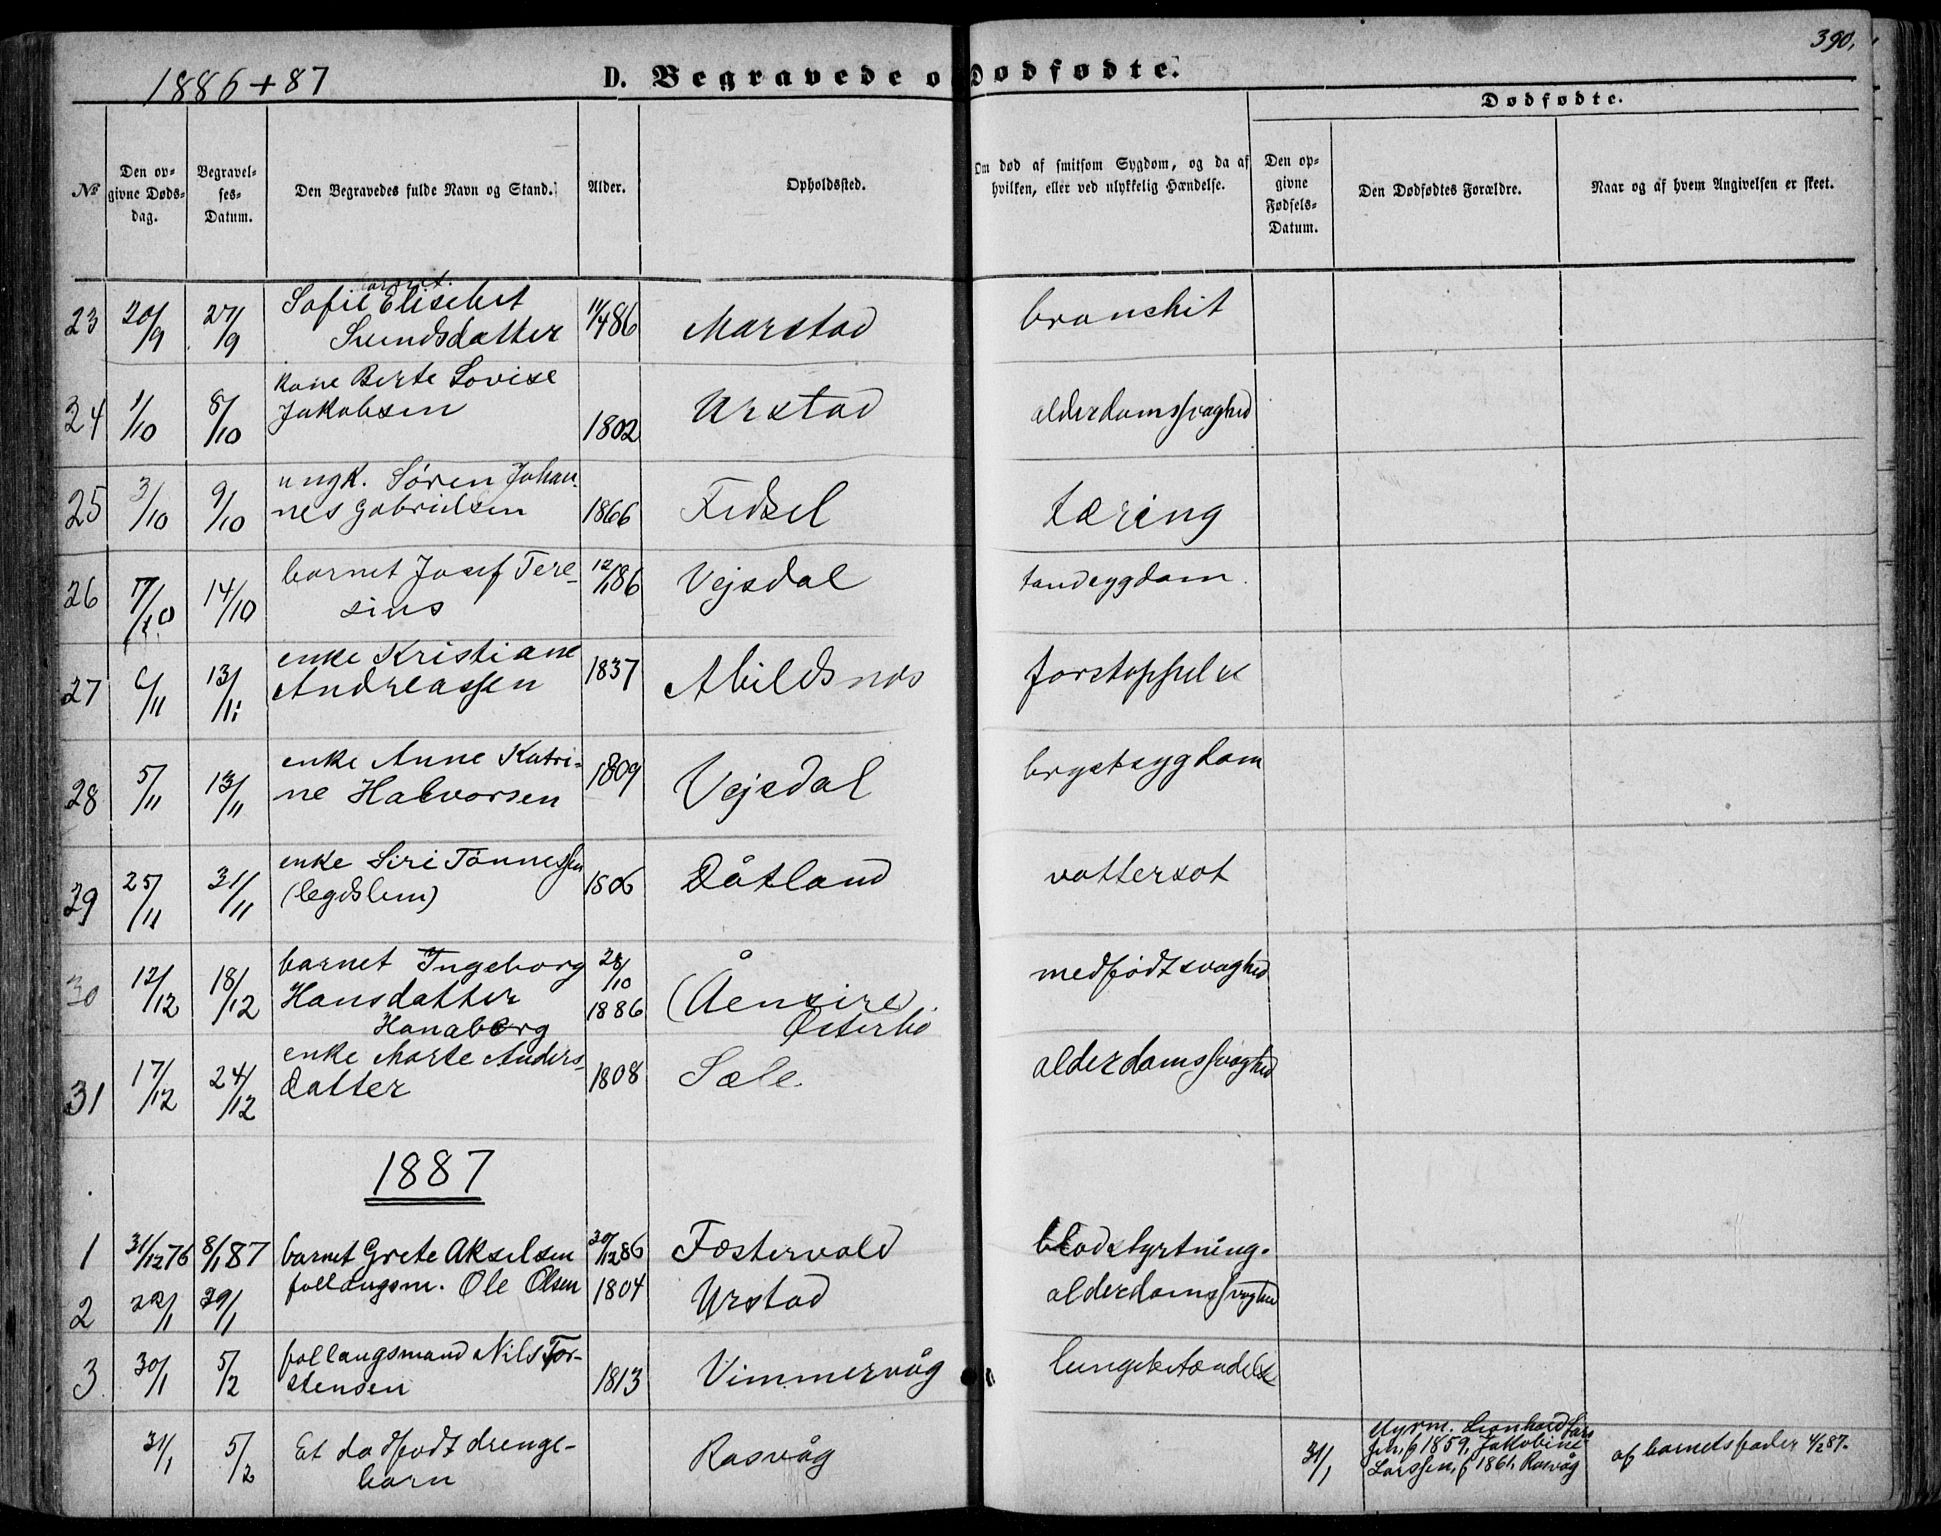 390.
1886+87
D. Begravede o Dodfødte.
Dødfødte.
No
Den opgivne Dødsdag.
Begravelses-Datum.
Den Begravedes fulde Navn og Stand.
Alder.
Opholdssted.
Om død af smitsom Sygdom, og da af hvilken, eller ved ulykkelig Hændelse.
Den opgivne Fødsels-Datum.
Den Dødfødtes Forældre.
Naar og af hvem Angivelsen er skeet.
barnet.
23 20/9 27/9 Sofie Elisebet 11/4 86 Marstad bronchit
Svendsdatter
24 1/10 8/10 kone Berte Lovise Jakobsen 1802 Urstad alderdomssvaghed
25 3/10 9/10 ungk. Søren Johan-
nes Gabrielsen 1866 Fedsel tæring
26 7/10 14/10 barnet Josef Tere- 12/1 86 Vejsdal tandsygdom.
sius
27 6/11 13/11 enke Kristiane
Andreassen 1837 Abildsnes forstoppelse
28 5/11 13/11 enke Anne Katri-
ne Halvorsen 1809 Vejsdal brystsygdom
29 25/11 31/11 enke Siri Tønnessen
(legdslem) 1806 Dåtland vattersot
30 12/12 18/12 barnet Ingeborg 28/10
Hansdatter 1886 (Åensire) medfødt svaghed
Hanaberg Østerbø
31 17/12 24/12 enke Marte Anders-
datter 1808 Sæle. alderdomssvaghed
1887
1 31/12 76 8/1 87 barnet Grete Akselsen 30/12 86 Fæstervold blodstyrtning.
2 22/1 29/1 follaugsm. Ole Olsen 1804 Urstad alderdomssvaghed
3 30/1 5/2 follaugsmand Nils Tor-
stensen 1813 Vimmervåg lungebetændelse
31/1 5/2 Et dødfødt drenge-
barn Rasvåg 31/1
Leonhard Lars
sen, f 1859, Jakobine
Larssen, f 1861, Rasvåg
af barnets fader 4/2 87.